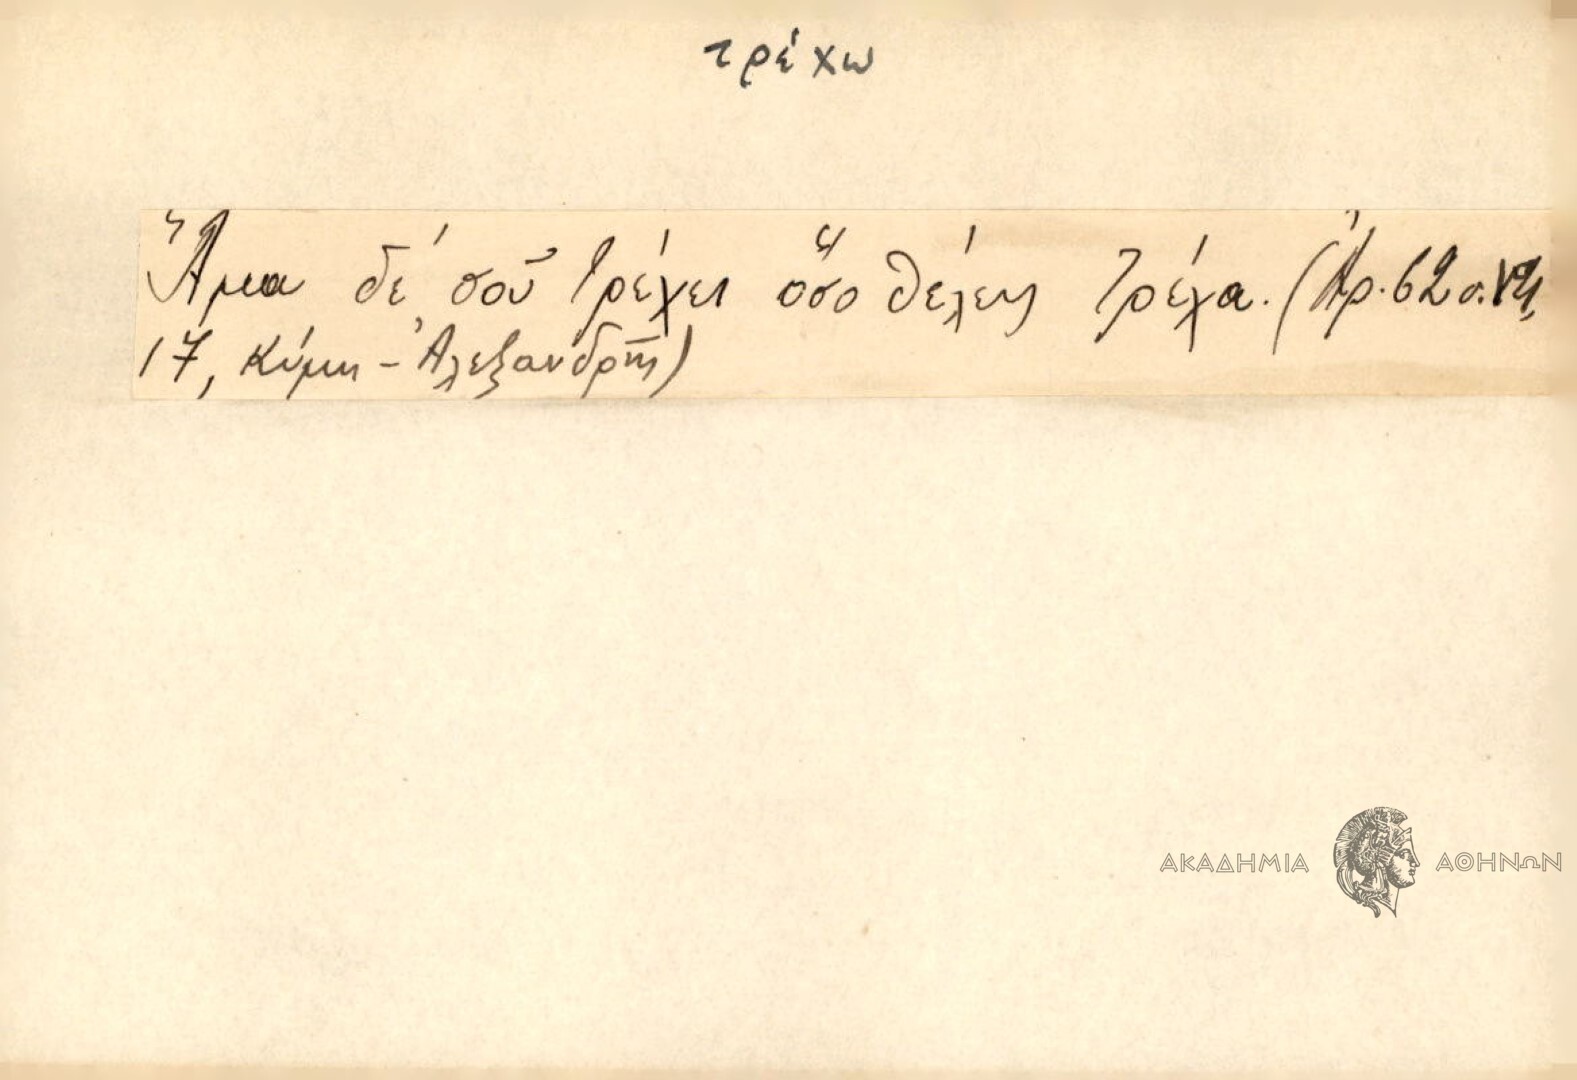 τρέχω
Ἅμα δέ σοῦ τρέχει ὅσο θέλεις τρέχα. (Ἀρ. 62 σ.
17, Κύμη - Ἀλεξανδρῆς)
ΑΚΑΔΗΜΙΑ ΑΘΗΝΩΝ